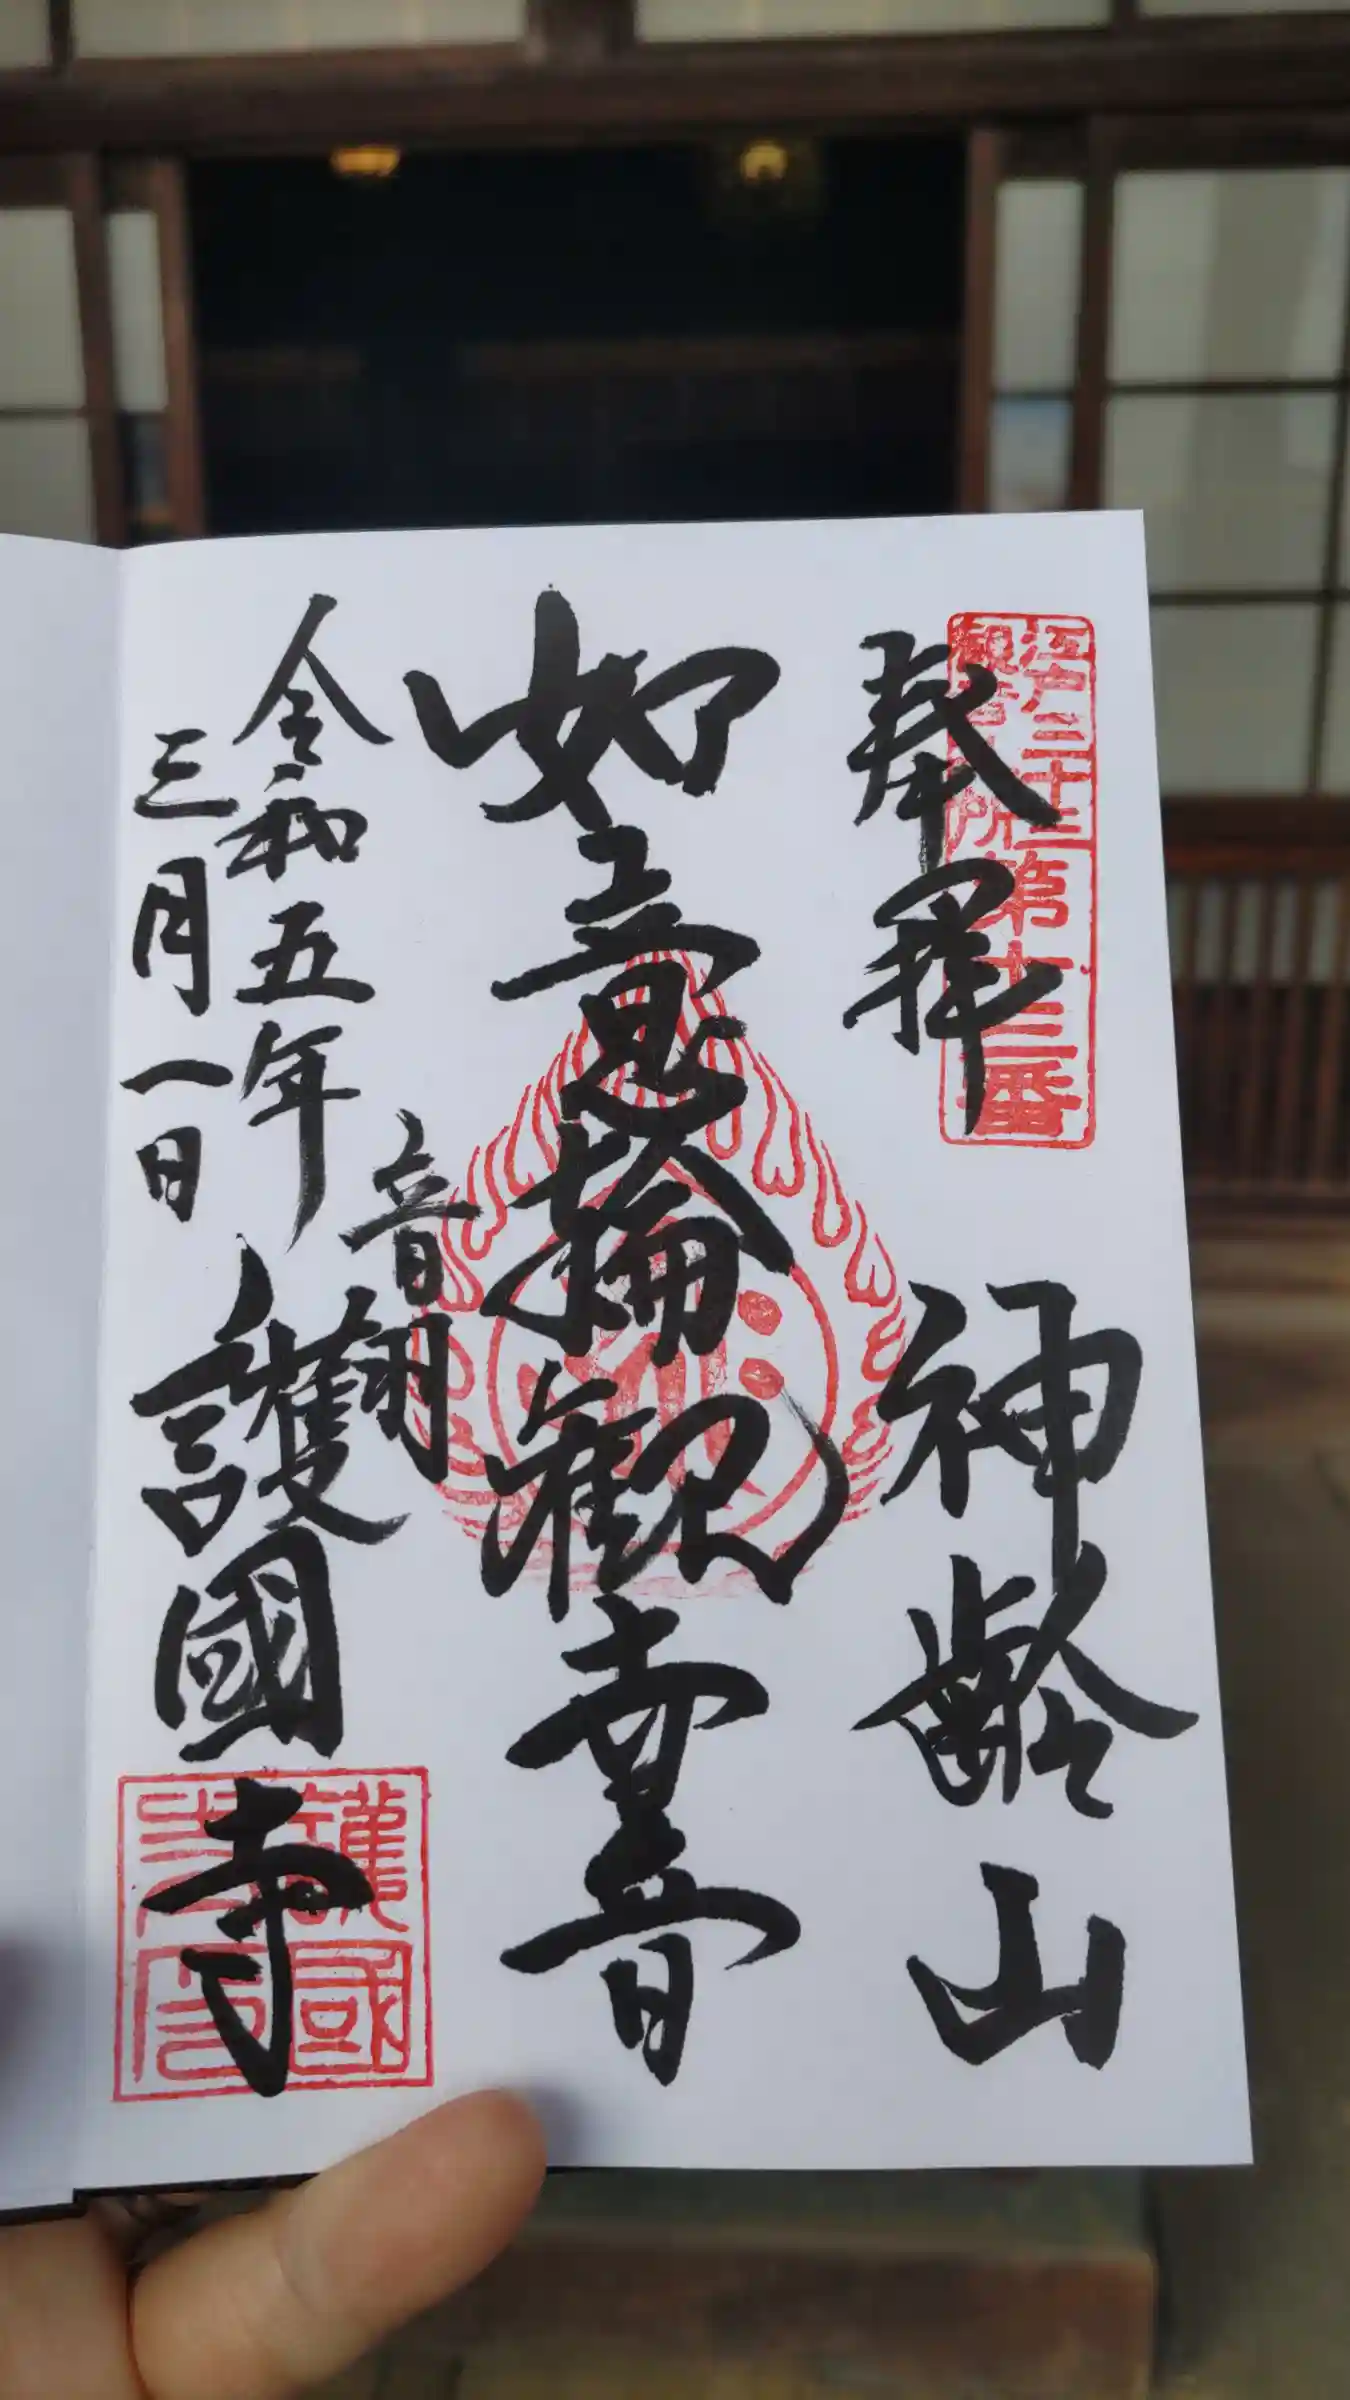 江戸三十三
観音札所
第十三番
奉拝
神齢山
如意輪観世音
令和五年
三月一日
音羽
護國寺
護國
寺印